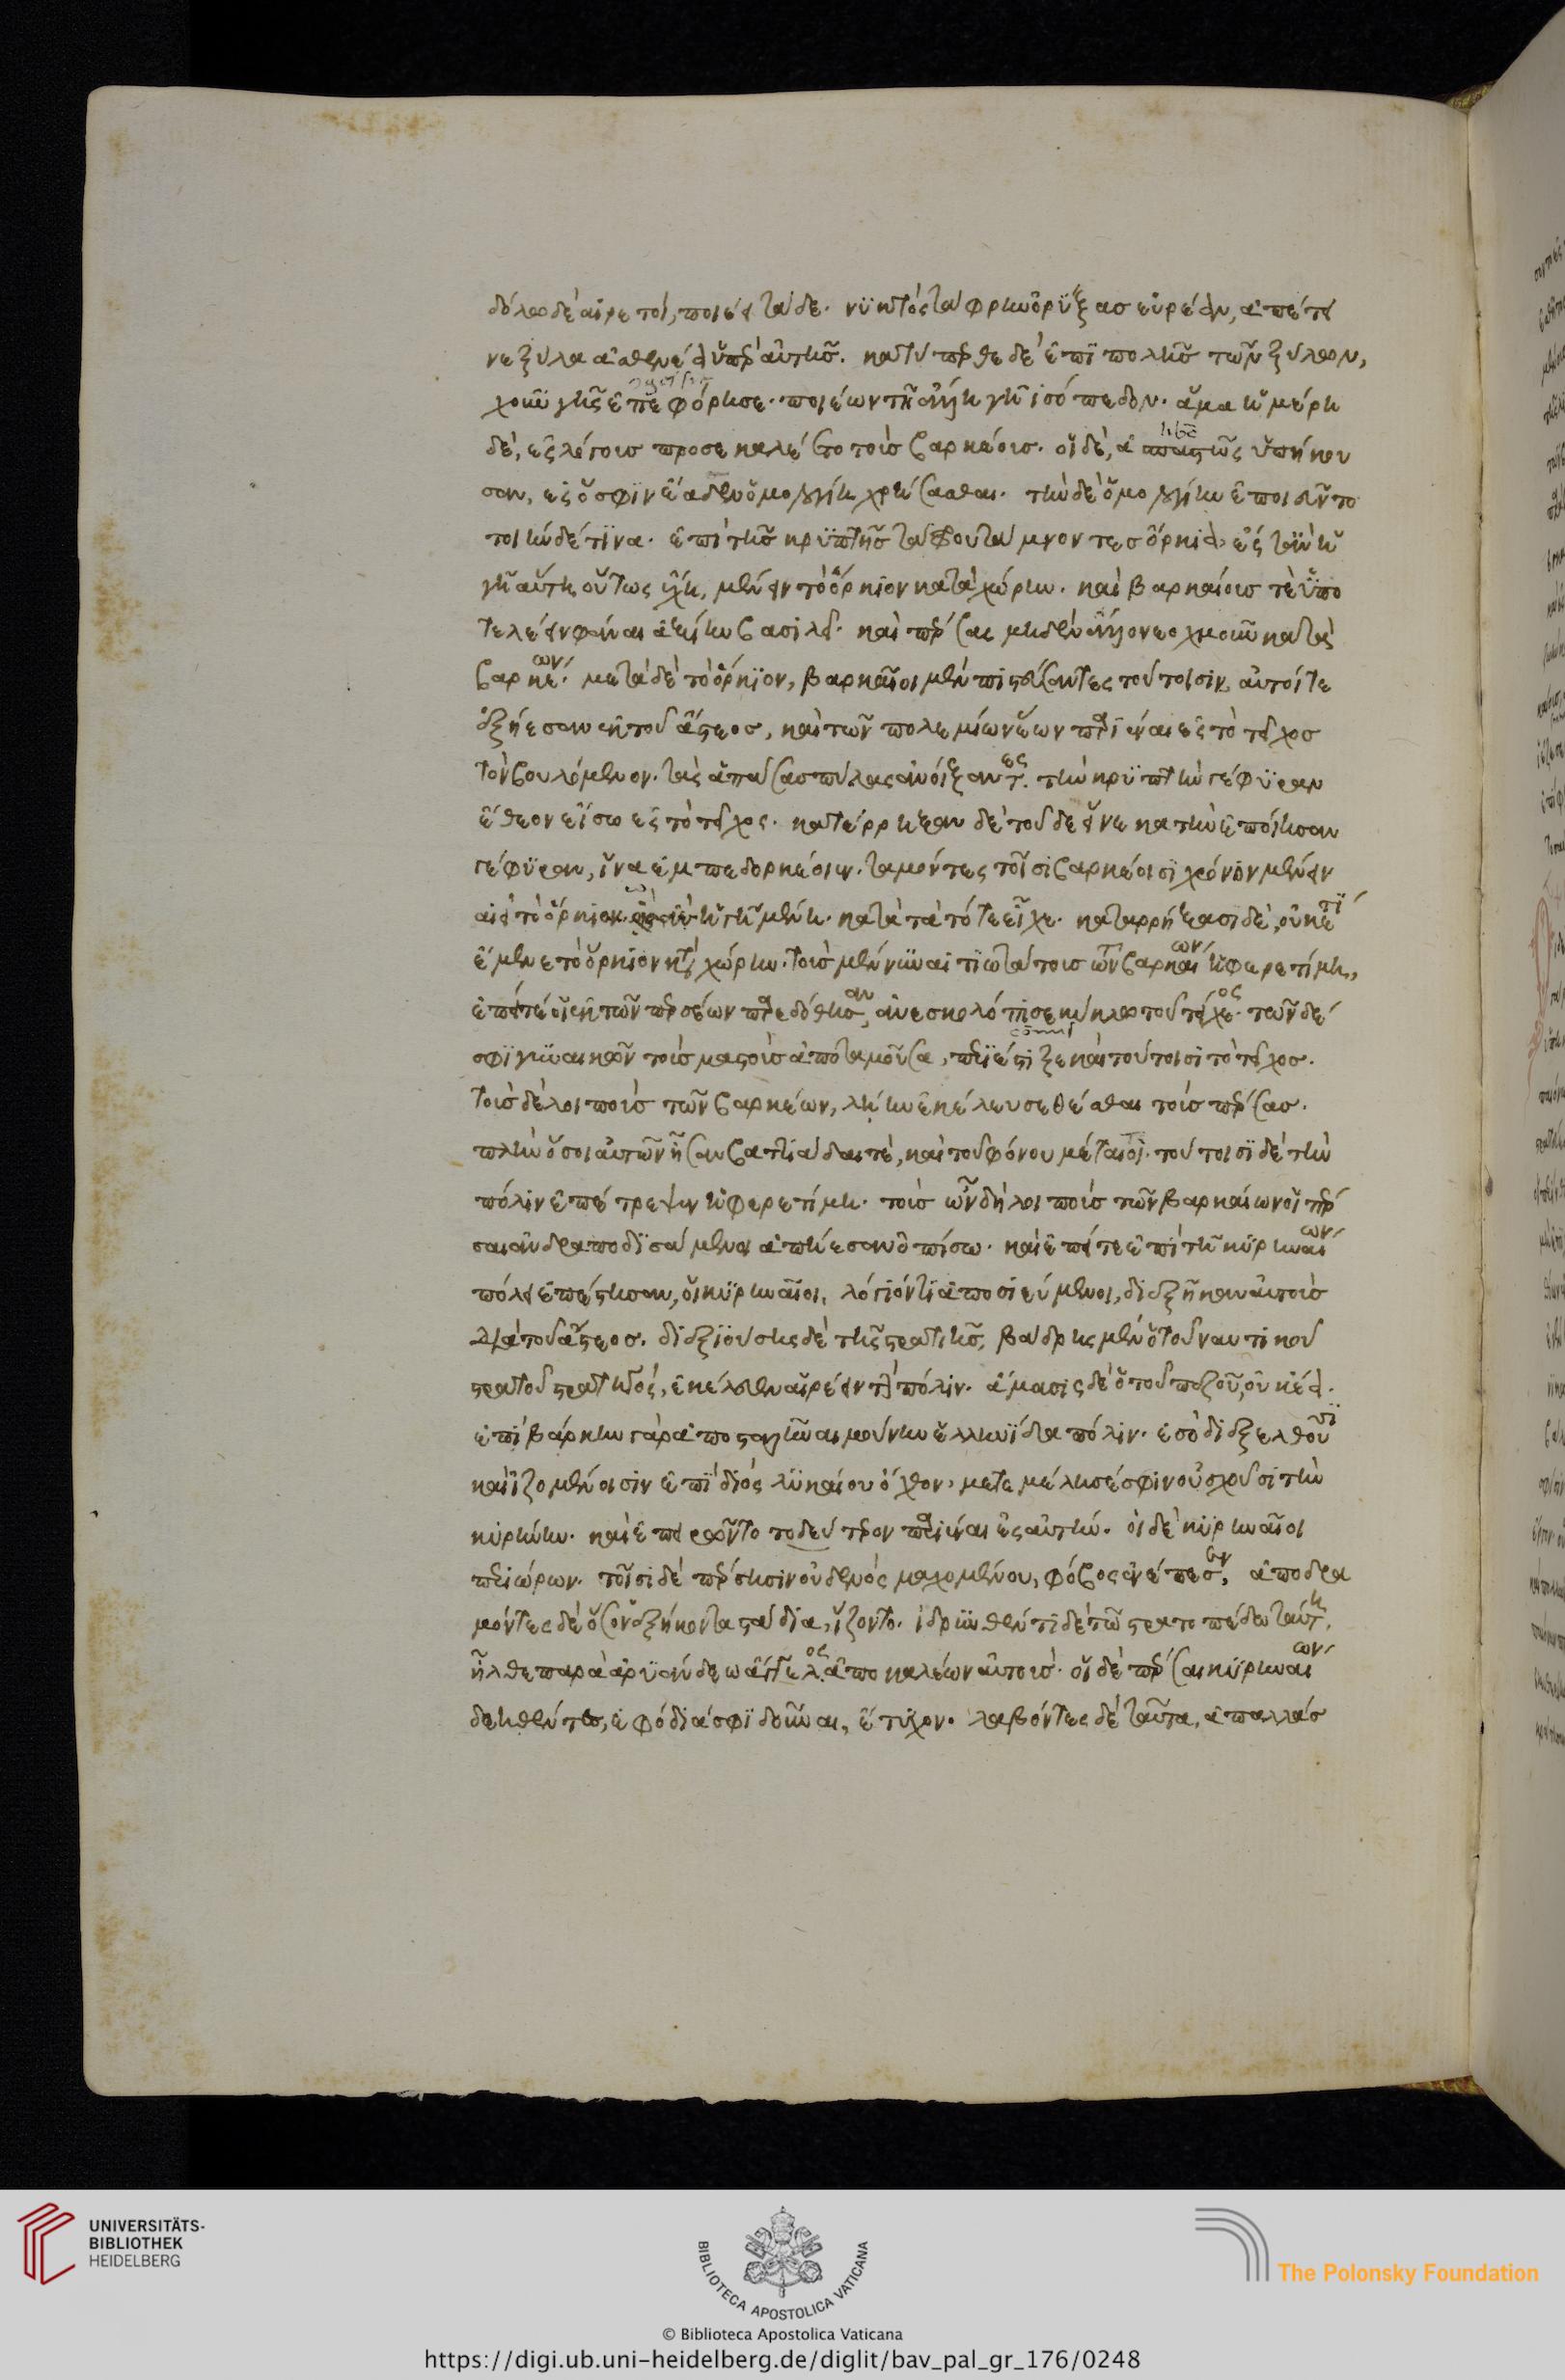 δόλωδὲ αἱρετοί, ποιέει τάδε. νυκτὸς τάφρην ὀρύξας εὐρέαν, ἐπέτει
νε ξύλα ἀσθενέα ὑπὲρ αὐτῆς. κατύπερθε δὲ ἐπὶ πολῆς τῶν ξύλων,
χοῦν γῆς ἐπεφόρησε. ποιέων τῇ ἄλλη γῇ ἰσόπεδον. ἅμα ἡμέρη
δὲ, ἐς λόγους προσεκαλέετο τοὺς βαρκέους. οἱ δὲ, ἀσπαστῶς ὑπήκου
σαν, ἐς ὅ σφιν ἕαδεν ὁμολογίη χρήσασθαι. τὴν δὲ ὁμολογίην ἐποιεῦντο
τοιήνδέ τινα. ἐπὶ τῆς κρυπτῆς τάφρου τάμνοντες ὅρκια, ἔς τ' ἂν ἡ
γῆ αὕτη οὕτως ἔχη, μένειν τὸ ὅρκιον κατὰ χώρην. καὶ βαρκαίους τὲ ὑπο
τελέειν φάναι ἀξίην βασιλεῖ. καὶ πέρσας μηδὲν ἄλλο νεοχμοῦν κατὰ
βαρκέων. μετὰ δὲ τὸ ὅρκιον, βαρκαῖοι μὲν πιστεύσαντες τούτοισιν, αὐτοί τε
ἐξήεσαν ἐκ τοῦ ἄστεος, καὶ τῶν πολεμίων ἔων παριέναι ἐς τὸ τεῖχος
τὸν βουλόμενον. τὰς ἁπάσας πύλας ἀνοίξαντες. τὴν κρυπτὴν γέφυραν
ἔθεον εἴσω ἐς τὸ τεῖχος. κατέρρηξαν δὲ τοῦδε εἵνεκα τὴν ἐποίησαν
γέφυραν, ἵνα ἐμπεδορκέοιεν. ταμόντες τοῖσι βαρκέοισι χρόνον μένειν
αἰεὶ τὸ ὅρκιον ἡ γῆ μένη. κατὰ τὰ τότε εἶχε. καταρρήξασι δὲ, οὐκέτι
ἔμενε τὸ ὅρκιον κατὰ χώρην. τοὺς μὲν νῦν αἰτιωτάτους τῶν βαρκαίων ἡ φερετίμη,
ἐπείτε οἱ ἐκ τῶν περσέων παρεδόθησαν, ἀνεσκολόπισε κύκλω τοῦ τείχεος. τῶν δέ
σφι γυναικῶν τοὺς μαστοὺς ἀποταμοῦσα, περιέστιξε καὶ τούτοισι τὸ τεῖχος.
τοὺς δὲ λοιποὺς τῶν βαρκέων, ληΐην ἐκέλευσε θέσθαι τοὺς πέρσας.
πλὴν ὅσοι αὐτῶν ἦσαν βαττιάδαι τὲ, καὶ τοῦ φόνου μέταίτιοι. τούτοισι δὲ τὴν
πόλιν ἐπέτρεψεν ἡ φερετίμη. τοὺς ὦν δὴ λοιποὺς τῶν βαρκαίων οἱ πέρ
σαι ἀνδραποδισάμενοι ἀπήεσαν ὀπίσω. καὶ ἐπείτε ἐπὶ τῇ κυρηναίων
πόλει ἐπέστησαν, οἱ κυρηναῖοι, λόγιόν τι ἀποσιεύμενοι, διεξῆκαν αὐτοὺς
διὰ τοῦ ἄστεος. διεξιούσης δὲ τῆς στρατιῆς, βάδρης μὲν ὁ τοῦ ναυτικοῦ
στρατοῦ στρατηγὸς, ἐκέλευεν αἱρέειν τὴν πόλιν. ἄμασις δὲ ὁ τοῦ πεζοῦ, οὐκ ἔα.
ἐπὶ βάρκην γὰρ ἀποσταλῆναι μούνην ἑλληνίδα πόλιν. ἐς ὃ διεξελθοῦσι
καὶ ἱζομένοισιν ἐπὶ διὸς λυκαίου ὄχθον, μετεμέλησέ σφιν οὐ σχοῦσι τὴν
κυρήνην. καὶ ἐπειρῶντο τοδεύτερον παριέναι ἐς αὐτήν. οἱ δὲ κυρηναῖοι
περιώρων. τοῖσι δὲ πέρσησιν οὐδενὸς μαχομένου, φόβος ἐνέπεσεν, ἀποδρα
μόντες δὲ ὅσον ἑξήκοντα στάδια, ἵζοντο. ἱδρυνθέντι δὲ τῶ στρατοπέδω ταύτη,
ἦλθε παρὰ ἀρυάνδεω ἄγγελος ἀποκαλέων αὐτούς. οἱ δὲ πέρσαι κυρηναίων
δεηθέντες, ἐφόδιά σφι δοῦναι, ἔτυχον. λαβόντες δὲ ταῦτα, ἀπαλλάσ
UNIVERSITÄTS-
BIBLIOTHEK
HEIDELBERG
BIBLIOTECA APOSTOLICA VATICANA
The Polonsky Foundation
© Biblioteca Apostolica Vaticana
https://digi.ub.uni-heidelberg.de/diglit/bav_pal_gr_176/0248